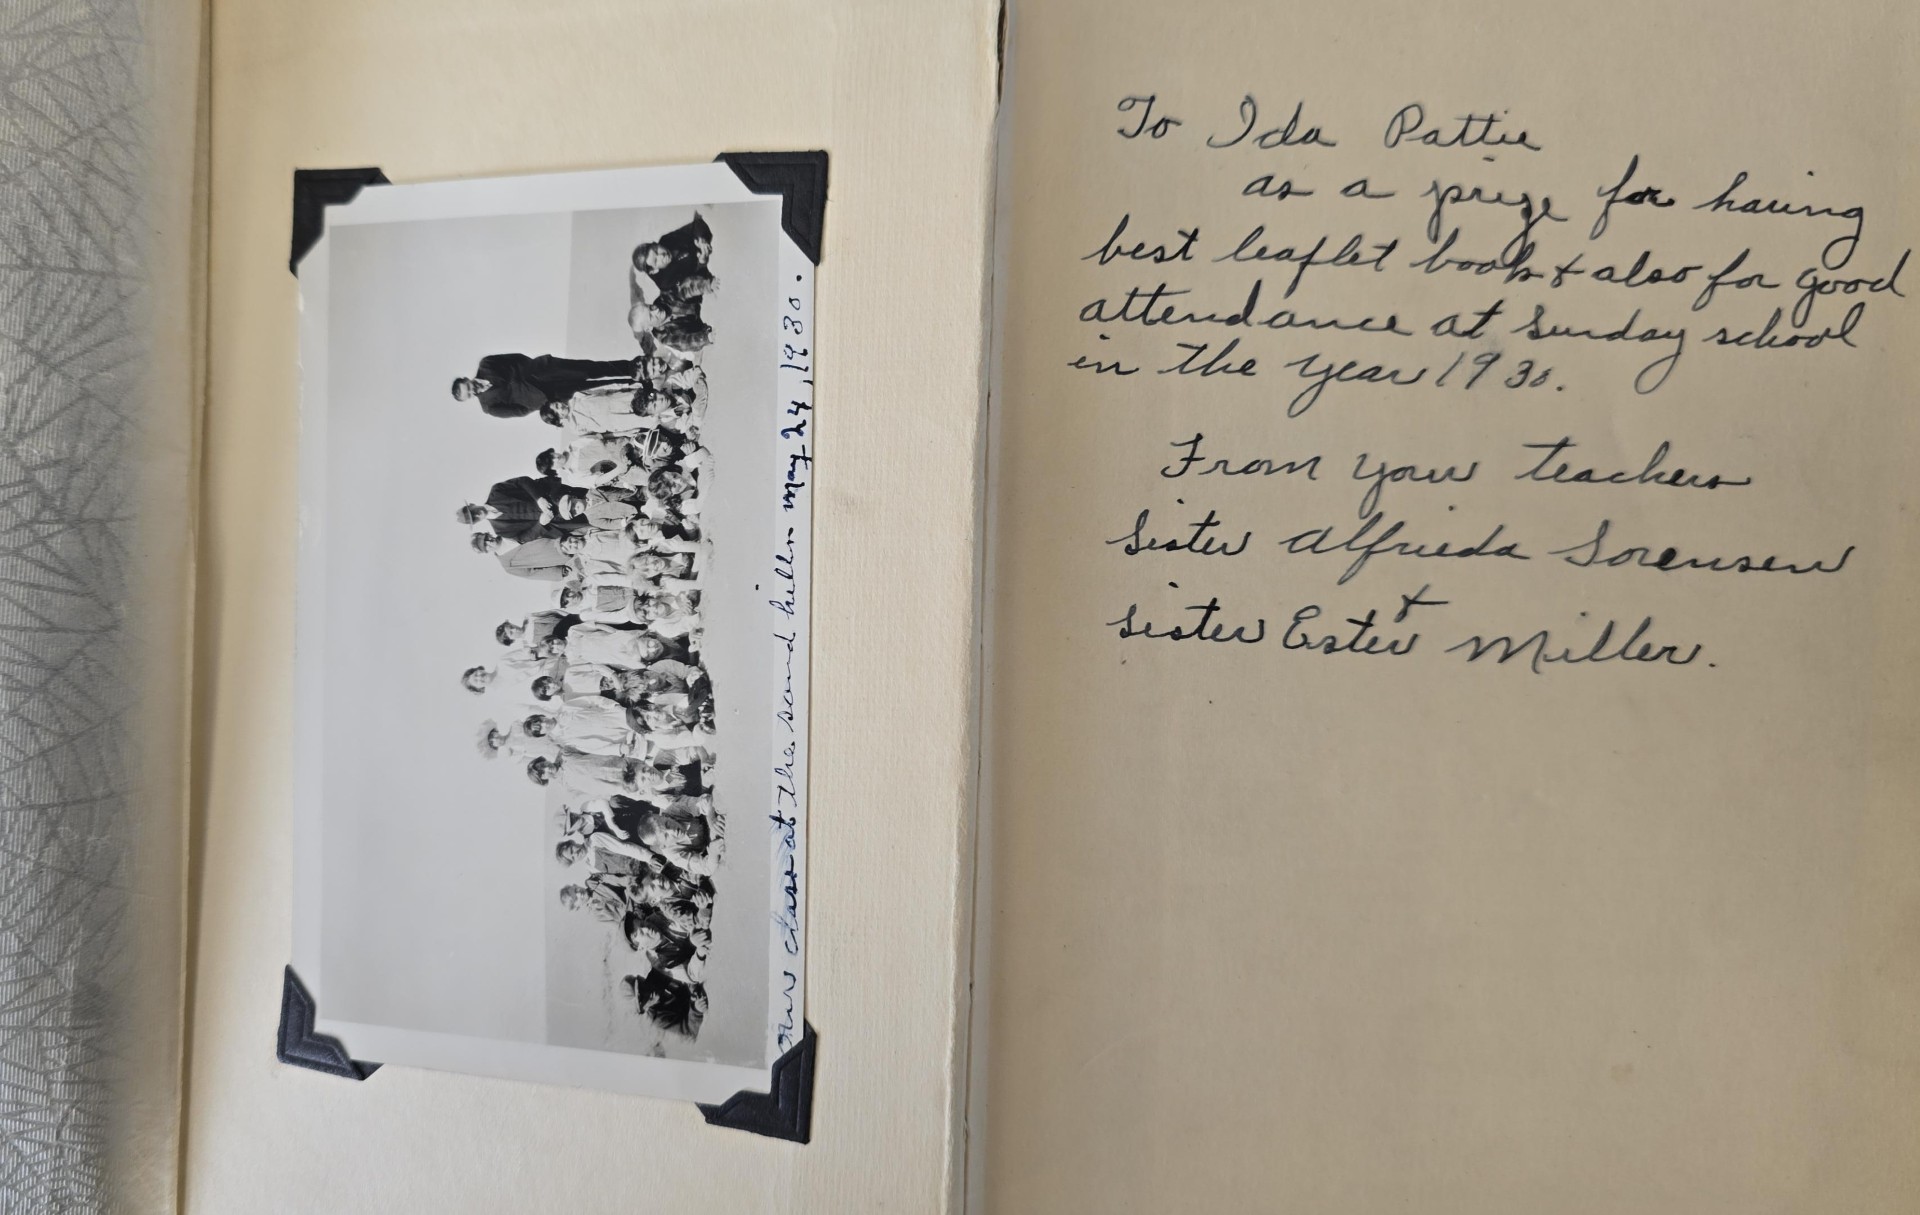 Our class at the sand hills may 24, 1930.
To Ida Pattie
as a prize for having
best leaflet book & also for good
attendance at Sunday school
in the year 1930.
From your teachers
Sister Alfrieda Sorensen
&
Sister Ester Miller.